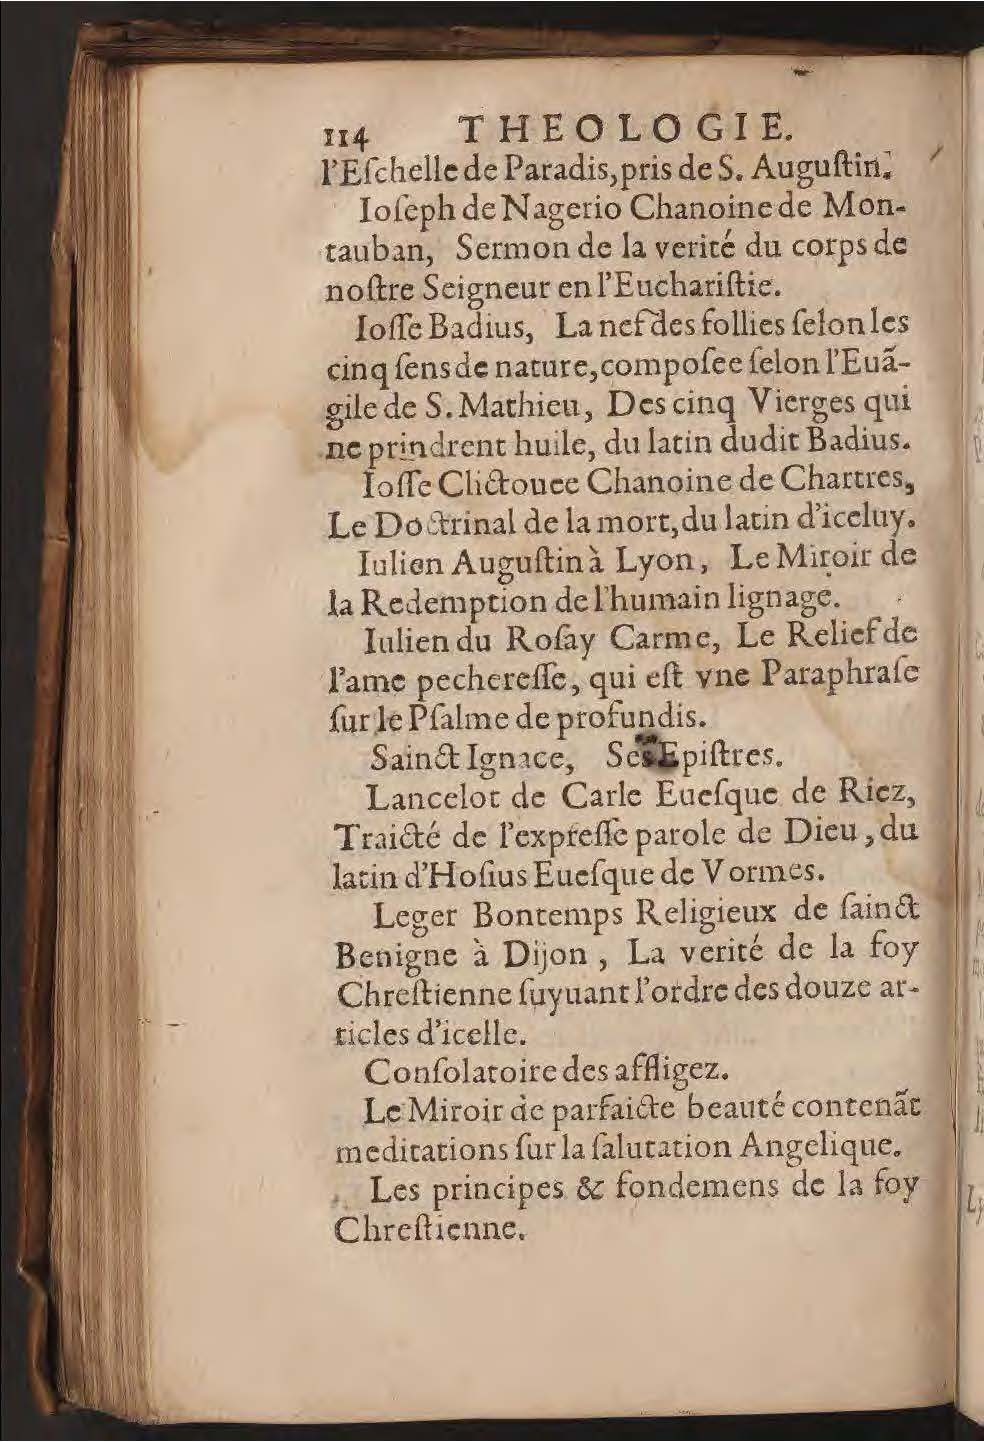 114 THEOLOGIE.
l'Eſchelle de Paradis, pris de S. Auguſtin.
Ioſeph de Nagerio Chanoine de Mon-
tauban, Sermon de la verité du corps de
noſtre Seigneur en l'Euchariſtie.
Ioſſe Badius, La nef des follies ſelon les
cinq ſens de nature, compoſee ſelon l'Euã-
gile de S. Mathieu, Des cinq Vierges qui
ne prindrent huile, du latin dudit Badius.
Ioſſe Clictouee Chanoine de Chartres,
Le Doctrinal de la mort, du latin d'iceluy.
Iulien Auguſtin à Lyon, Le Miroir de
la Redemption de l'humain lignage.
Iulien du Roſay Carme, Le Relief de
l'ame pechereſſe, qui eſt vne Paraphraſe
ſur le Pſalme de profundis.
Sainct Ignace, Ses Epiſtres.
Lancelot de Carle Eueſque de Riez,
Traicté de l'expreſſe parole de Dieu, du
latin d'Hoſius Eueſque de Vormes.
Leger Bontemps Religieux de ſainct
Benigne à Dijon, La verité de la foy
Chreſtienne ſuyuant l'ordre des douze ar-
ticles d'icelle.
Conſolatoire des affligez.
Le Miroir de parfaicte beauté contenãt
meditations ſur la ſalutation Angelique.
Les principes & fondemens de la foy
Chreſtienne.